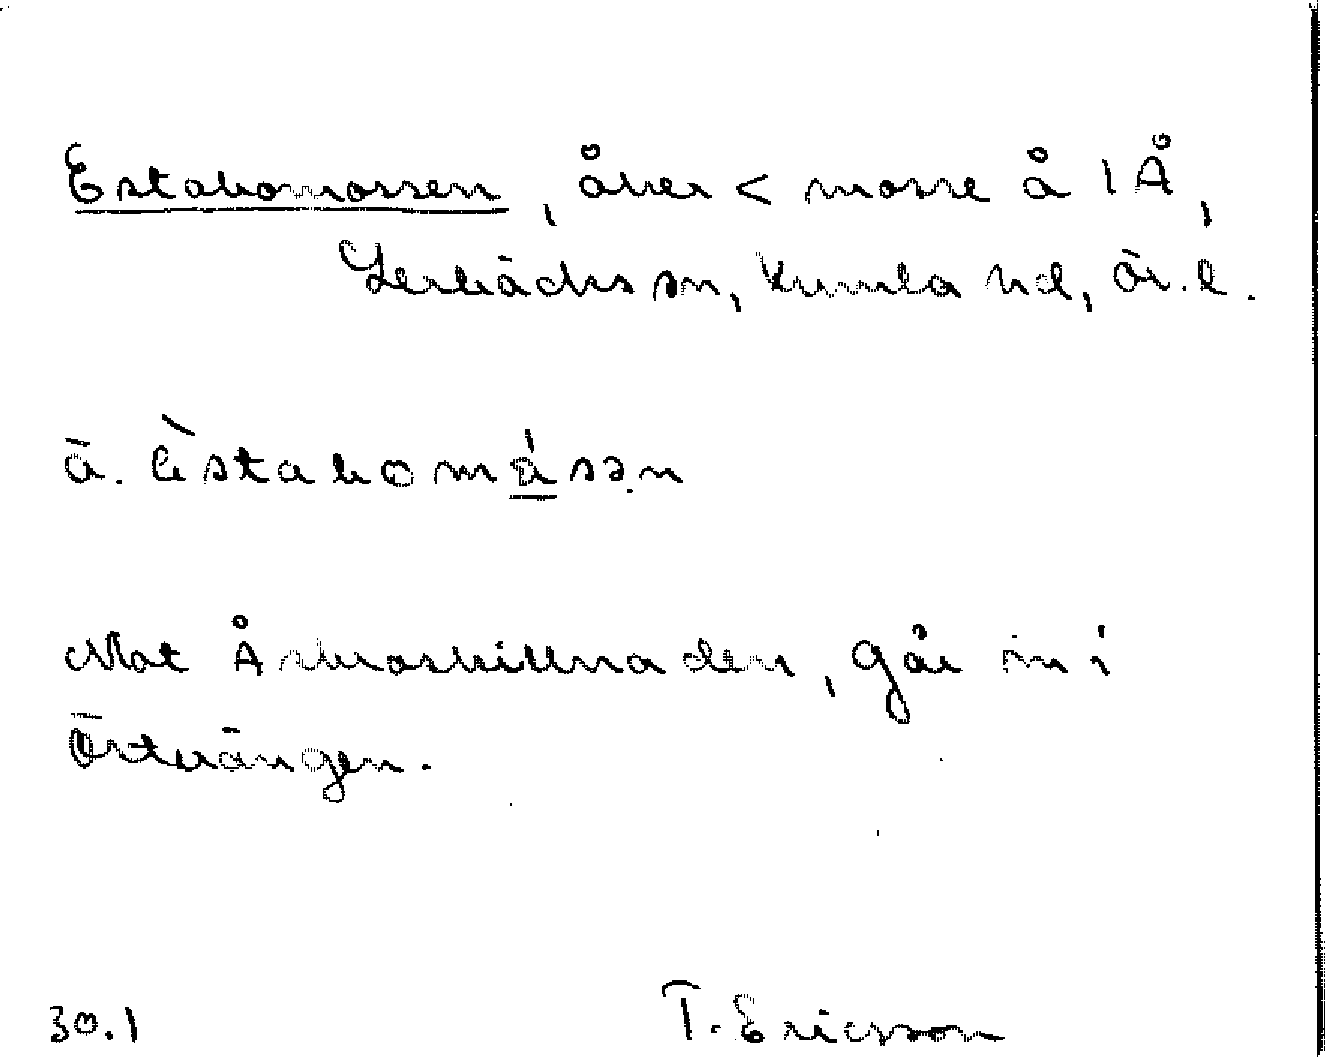 Estabomossen, åker < mosse å 1Å,
Lerbäcks sn, Kumla hd, Ör.l.
ä. èstabomǻsən
Mot Åsboskillnaden, går in i
Örtkärngen.
30.1
T. Ericsson